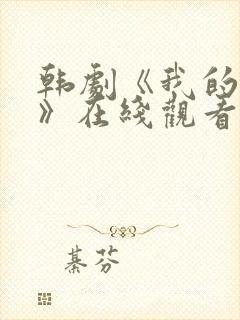 韩劇《我的
》在綫觀看
綦芬